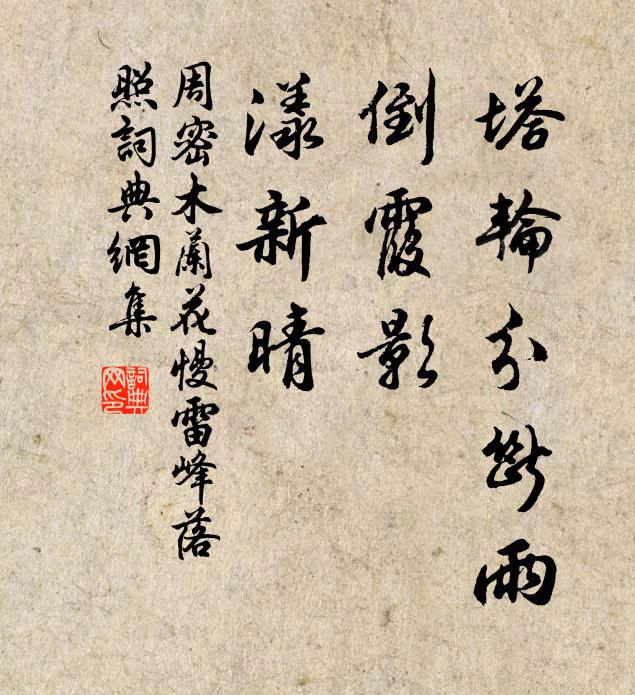 塔輪分斷雨
倒霞影
漾新晴
周密木蘭花慢雷峰落
照詞典網集
詞典
网印